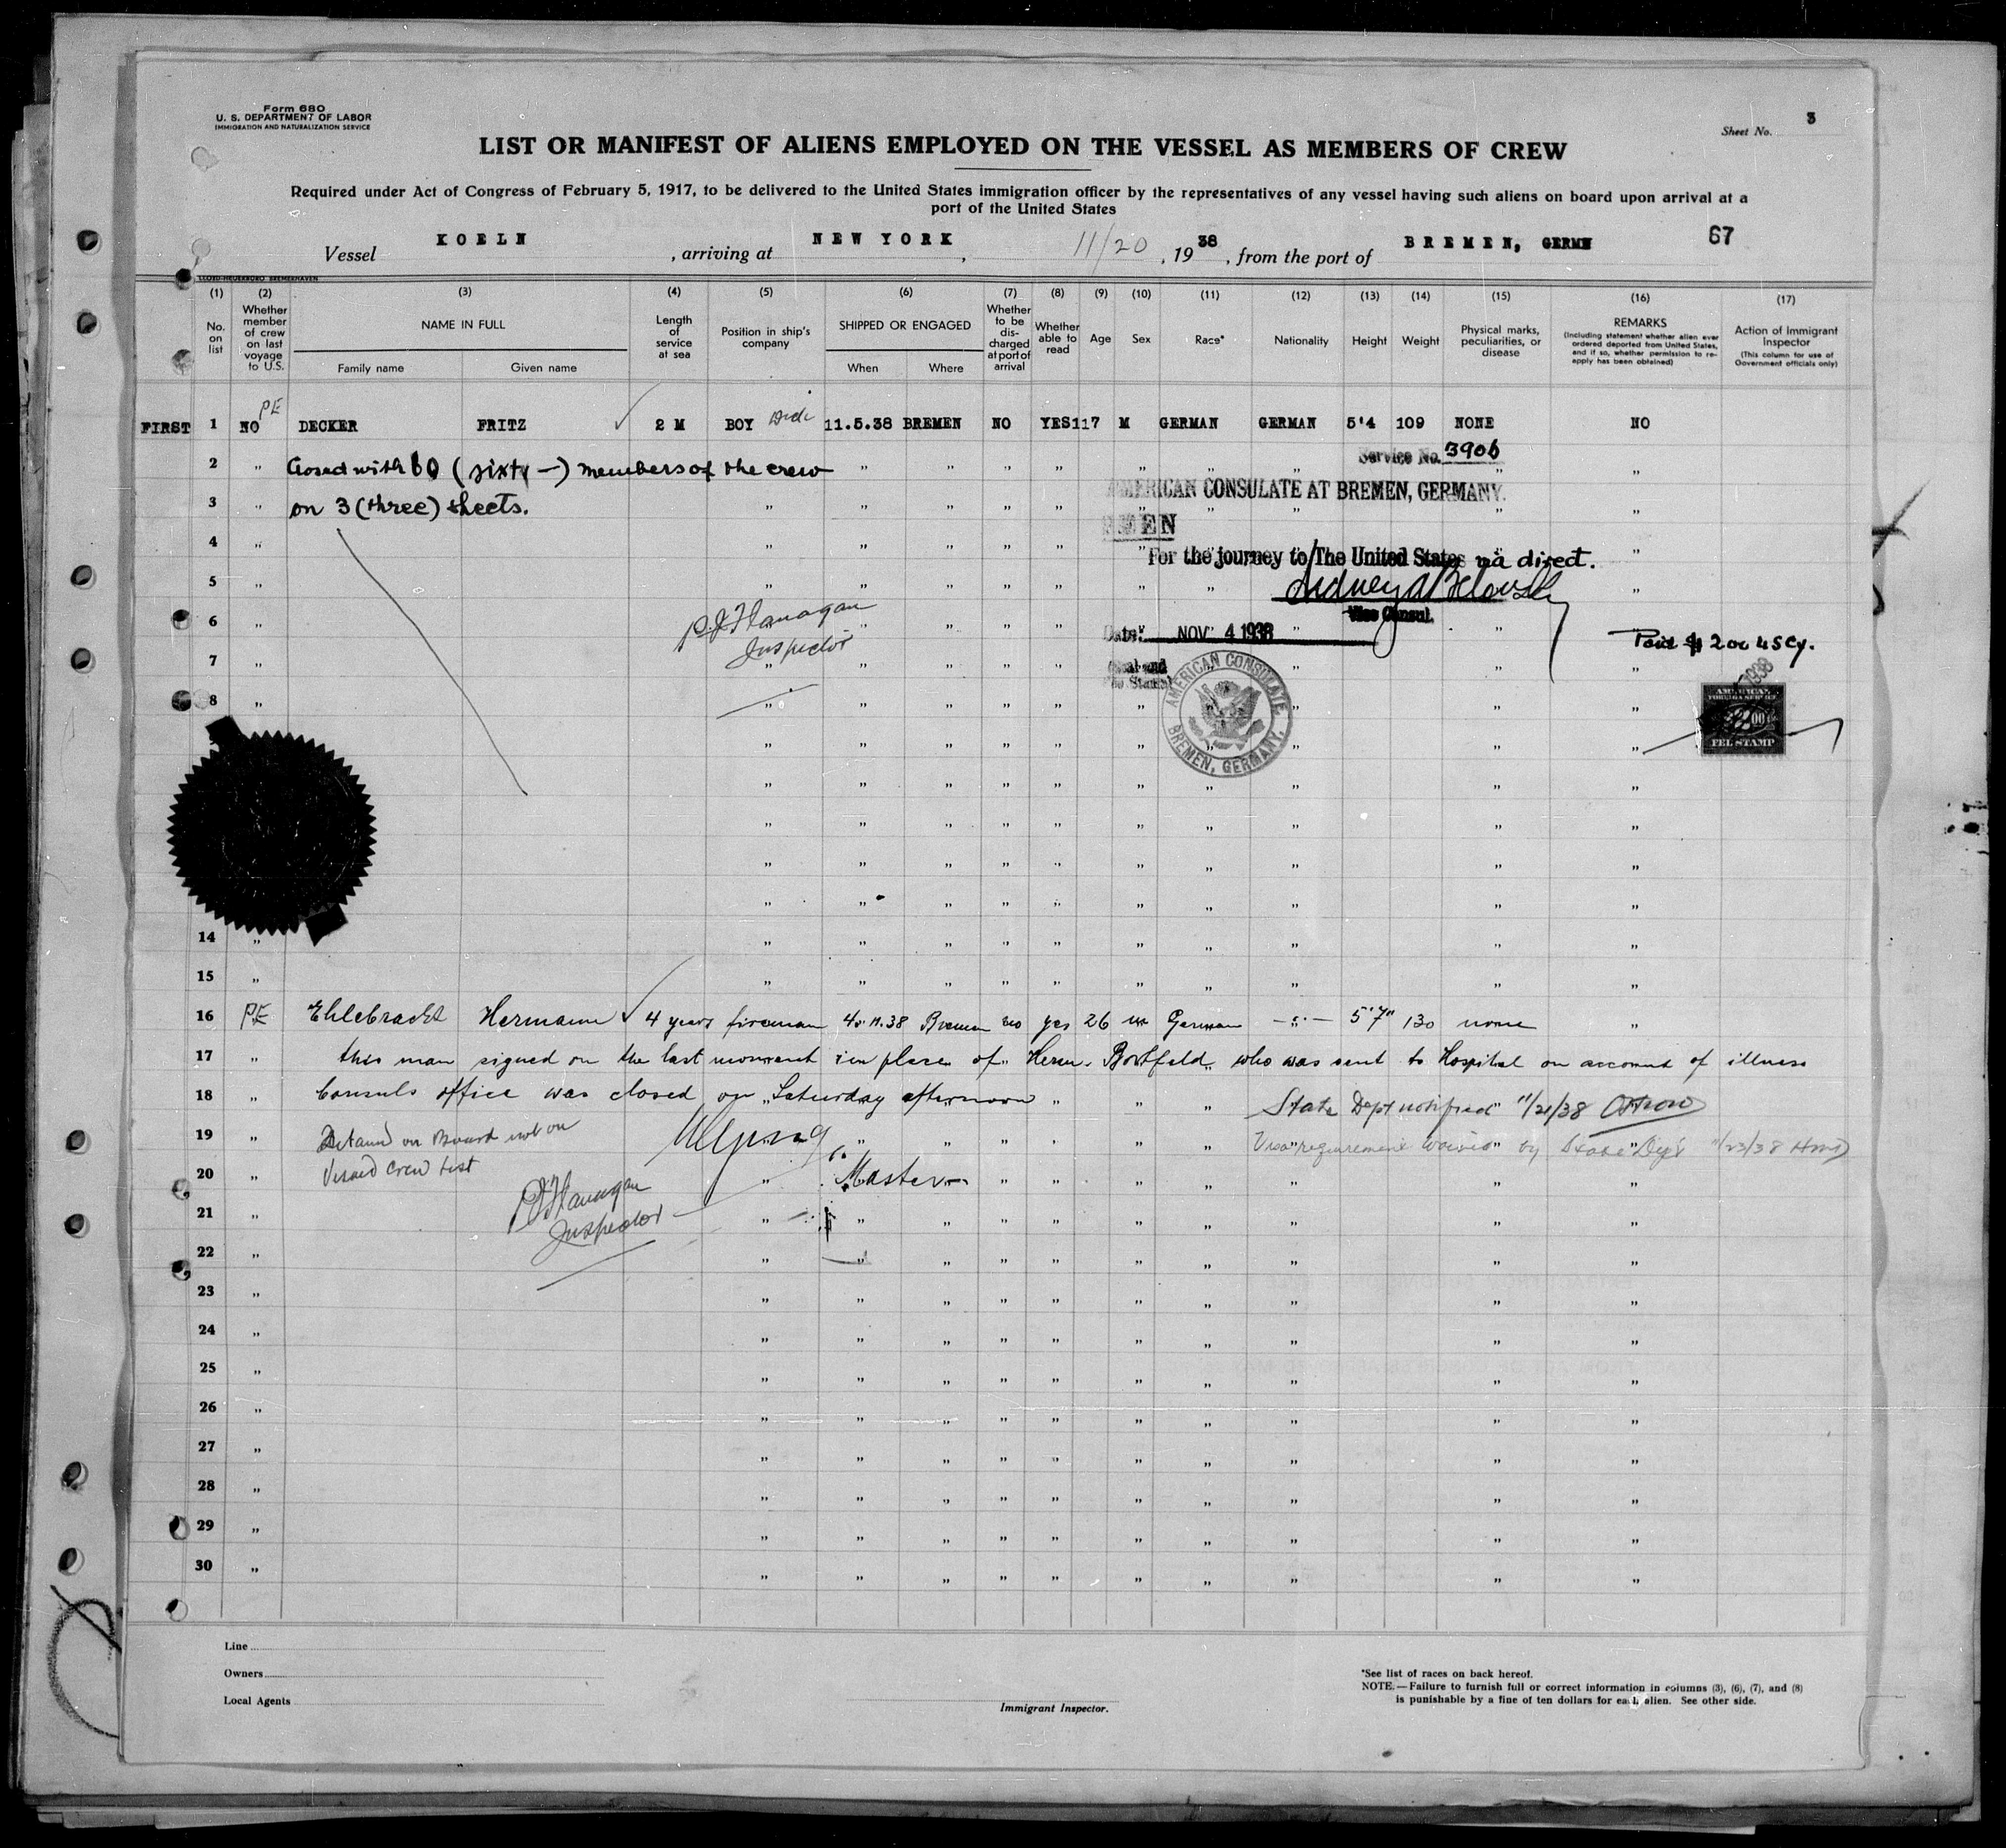 Form 680
U. S. DEPARTMENT OF LABOR
IMMIGRATION AND NATURALIZATION SERVICE
Sheet No. 3
LIST OR MANIFEST OF ALIENS EMPLOYED ON THE VESSEL AS MEMBERS OF CREW
Required under Act of Congress of February 5, 1917, to be delivered to the United States immigration officer by the representatives of any vessel having such aliens on board upon arrival at a
port of the United States
Vessel KOELN, arriving at NEW YORK, 11/20, 1938, from the port of BREMEN, GERMN 67
(1) (2) (3) (4) (5) (6) (7) (8) (9) (10) (11) (12) (13) (14) (15) (16) (17)
No. on list
Whether member of crew on last voyage to U.S.
NAME IN FULL
Family name Given name
Length of service at sea
Position in ship's company
SHIPPED OR ENGAGED
When Where
Whether to be discharged at port of arrival
Whether able to read
Age
Sex
Race*
Nationality
Height
Weight
Physical marks, peculiarities, or disease
REMARKS
(Including statement whether alien ever ordered deported from United States, and if so, whether permission to reapply has been obtained)
Action of Immigrant Inspector
(This column for use of Government officials only)
PE
FIRST 1 NO DECKER FRITZ 2 M BOY 11.5.38 BREMEN NO YES 117 M GERMAN GERMAN 5'4 109 NONE NO
2 " Closed with 60 (sixty —) members of the crew " " " " " " " Service No. 3906 " "
3 " on 3 (three) sheets. " " " " " AMERICAN CONSULATE AT BREMEN, GERMANY. "
4 " " " " " " "
For the journey to The United States via direct.
5 " " " " " " " "
Vice Consul.
6 " P.J. Flanagan " " " " " Date: NOV 4 1938 " "
Paid $ 2.00 U S Cy.
7 " Inspector " " " " " "
8 " " " " " " " " " "
AMERICAN CONSULATE, BREMEN, GERMANY.
AMERICAN FOREIGN SERVICE
$2.00
FEE STAMP
14 " " " " " " " " " " "
15 " " " " " " " " " " "
16 PE Ehlebracht Hermann 4 years fireman 4.11.38 Bremen no yes 26 m German — " — 5'7" 130 none "
17 " this man signed on the last moment in place of Herm. Bortfeld who was sent to Hospital on account of illness
18 " Consuls office was closed on Saturday afternoon " " " State Dept notified 11/21/38
19 " Detained on Board not on " " " " " Visa requirement waived by State Dept 11/23/38
20 " Visaed Crew List Master " " " " " " " "
21 " P.J. Flanagan " " " " " " " " " "
Inspector
22 " " " " " " " " " " "
23 " " " " " " " " " " "
24 " " " " " " " " " " "
25 " " " " " " " " " " "
26 " " " " " " " " " " "
27 " " " " " " " " " " "
28 " " " " " " " " " " "
29 " " " " " " " " " " "
30 " " " " " " " " " " "
Line
Owners
Local Agents
Immigrant Inspector.
*See list of races on back hereof.
NOTE.—Failure to furnish full or correct information in columns (3), (6), (7), and (8)
is punishable by a fine of ten dollars for each alien. See other side.